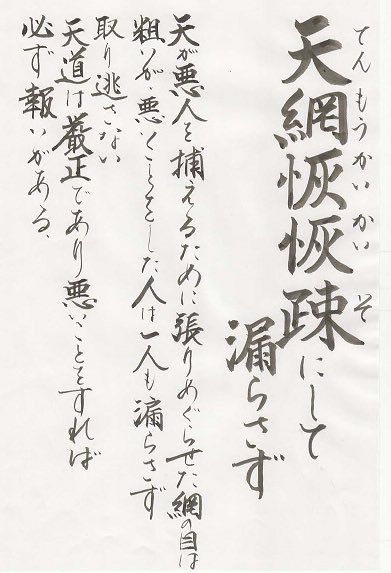 てんもうかいかい そ
天網恢恢疎にして
漏らさず
天が悪人を捕えるために張りめぐらせた網の目は
粗いが、悪いことをした人は一人も漏らさず
取り逃さない
天道は厳正であり悪いことをすれば
必ず報いがある、